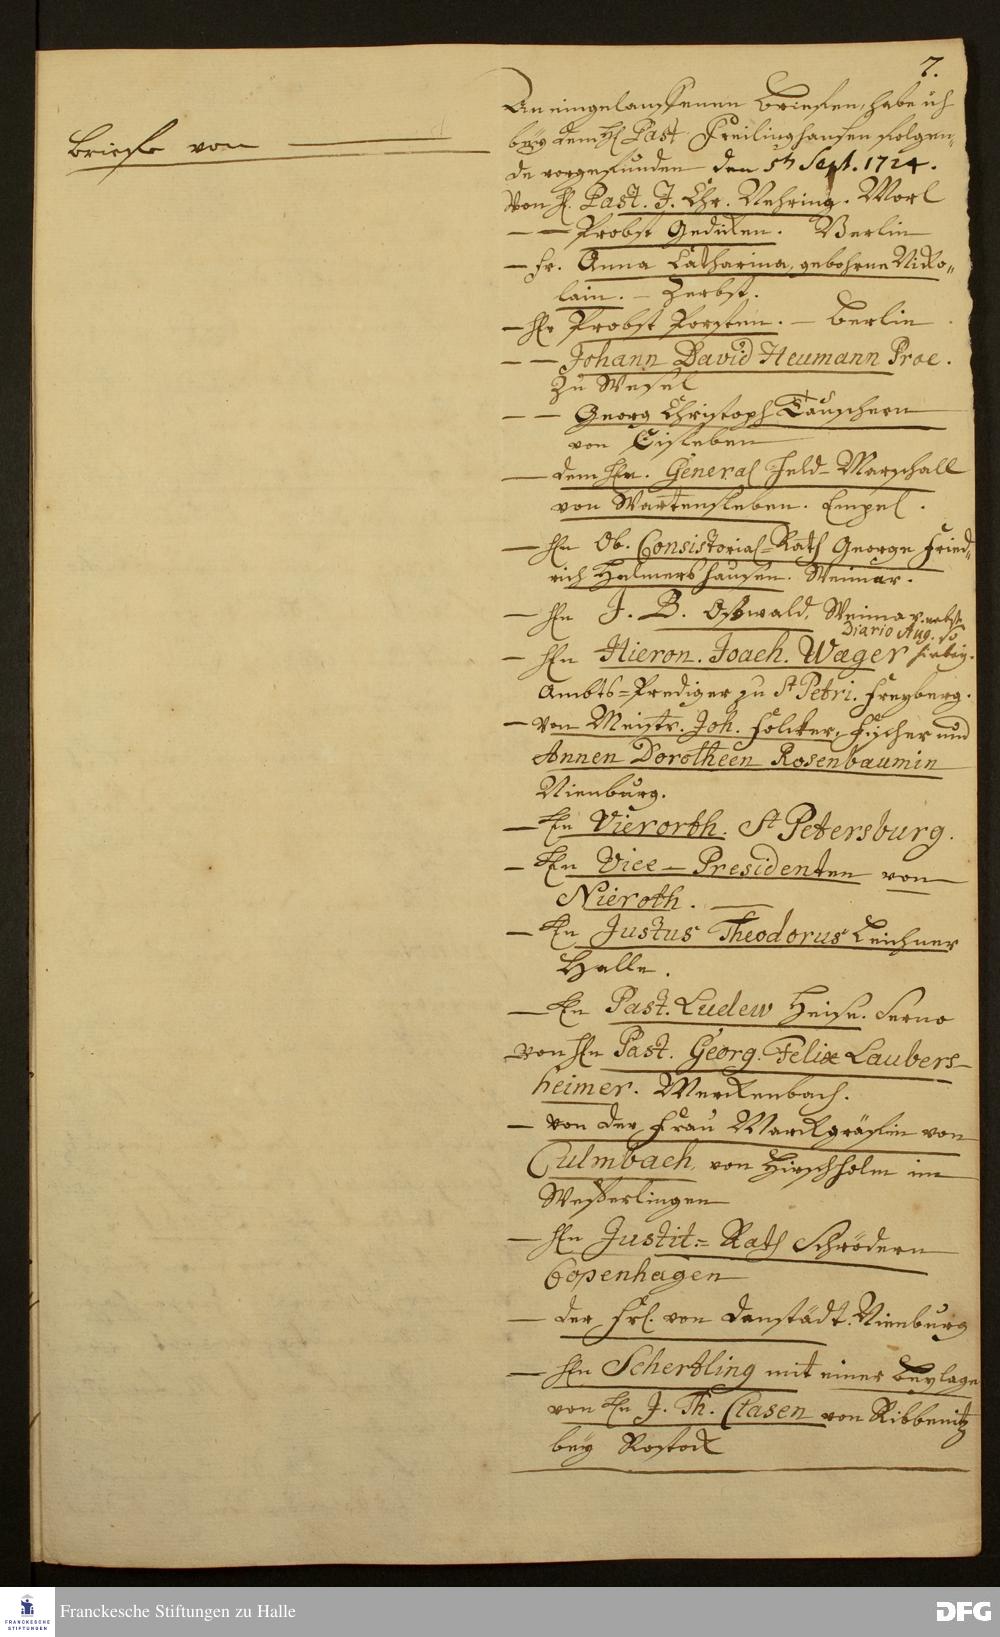 7.
Briefe von
An eingelauffenen Briefen, habe ich
bey dem H. Past Freilinghausen folgen-
de vorgefunden den 5ten Sept. 1724.
Von H. Past. J. Chr. Nehring. Morl
— — Probst Gedicken. Berlin
— Fr. Anna Catharina, gebohrne Nico-
lain. — Zerbst.
— HEn Probst Porsten. — Berlin
— — Johann David Heumann Proc.
Zu Wesel
— — Georg Christoph Täuschern
von Eisleben
— dem HEn. General Feld-Marschall
von Wartensleben. Empel.
— HEn Ob. Consistorial-Rath George Fried-
rich Halmershausen. Weimar.
— HEn J. B. Osswald, Weimar. nebst
Diario Aug. so
— HEn Hieron. Joach. Wäger hiebey.
Ambts-Prediger zu St Petri. Freyberg.
— Von Meistr. Joh. Fölcker, Fischer und
Annen Dorotheen Rosenbaumin
Nienburg.
— HEn Vierorth. St Petersburg.
— HEn Vice-Presidenten von
Nieroth. —
— HEn Justus Theodorus Leichner
Halle.
— HEn Past. Ludew Heise. Serno
von HEn Past. Georg. Felix Laubers-
heimer. Merckenbach.
— von der Frau Marckgräfin von
Culmbach, von Hirschholm im
Wefferlingen
— HEn Justit-Rath Schrödern
Copenhagen
— der Frl. von Denstädt. Nienburg
— HEn Schertling mit einer Beylage
von HEn J. Th. Clasen von Ribbenitz
bey Rostock
FRANCKESCHE
STIFTUNGEN
Franckesche Stiftungen zu Halle
DFG